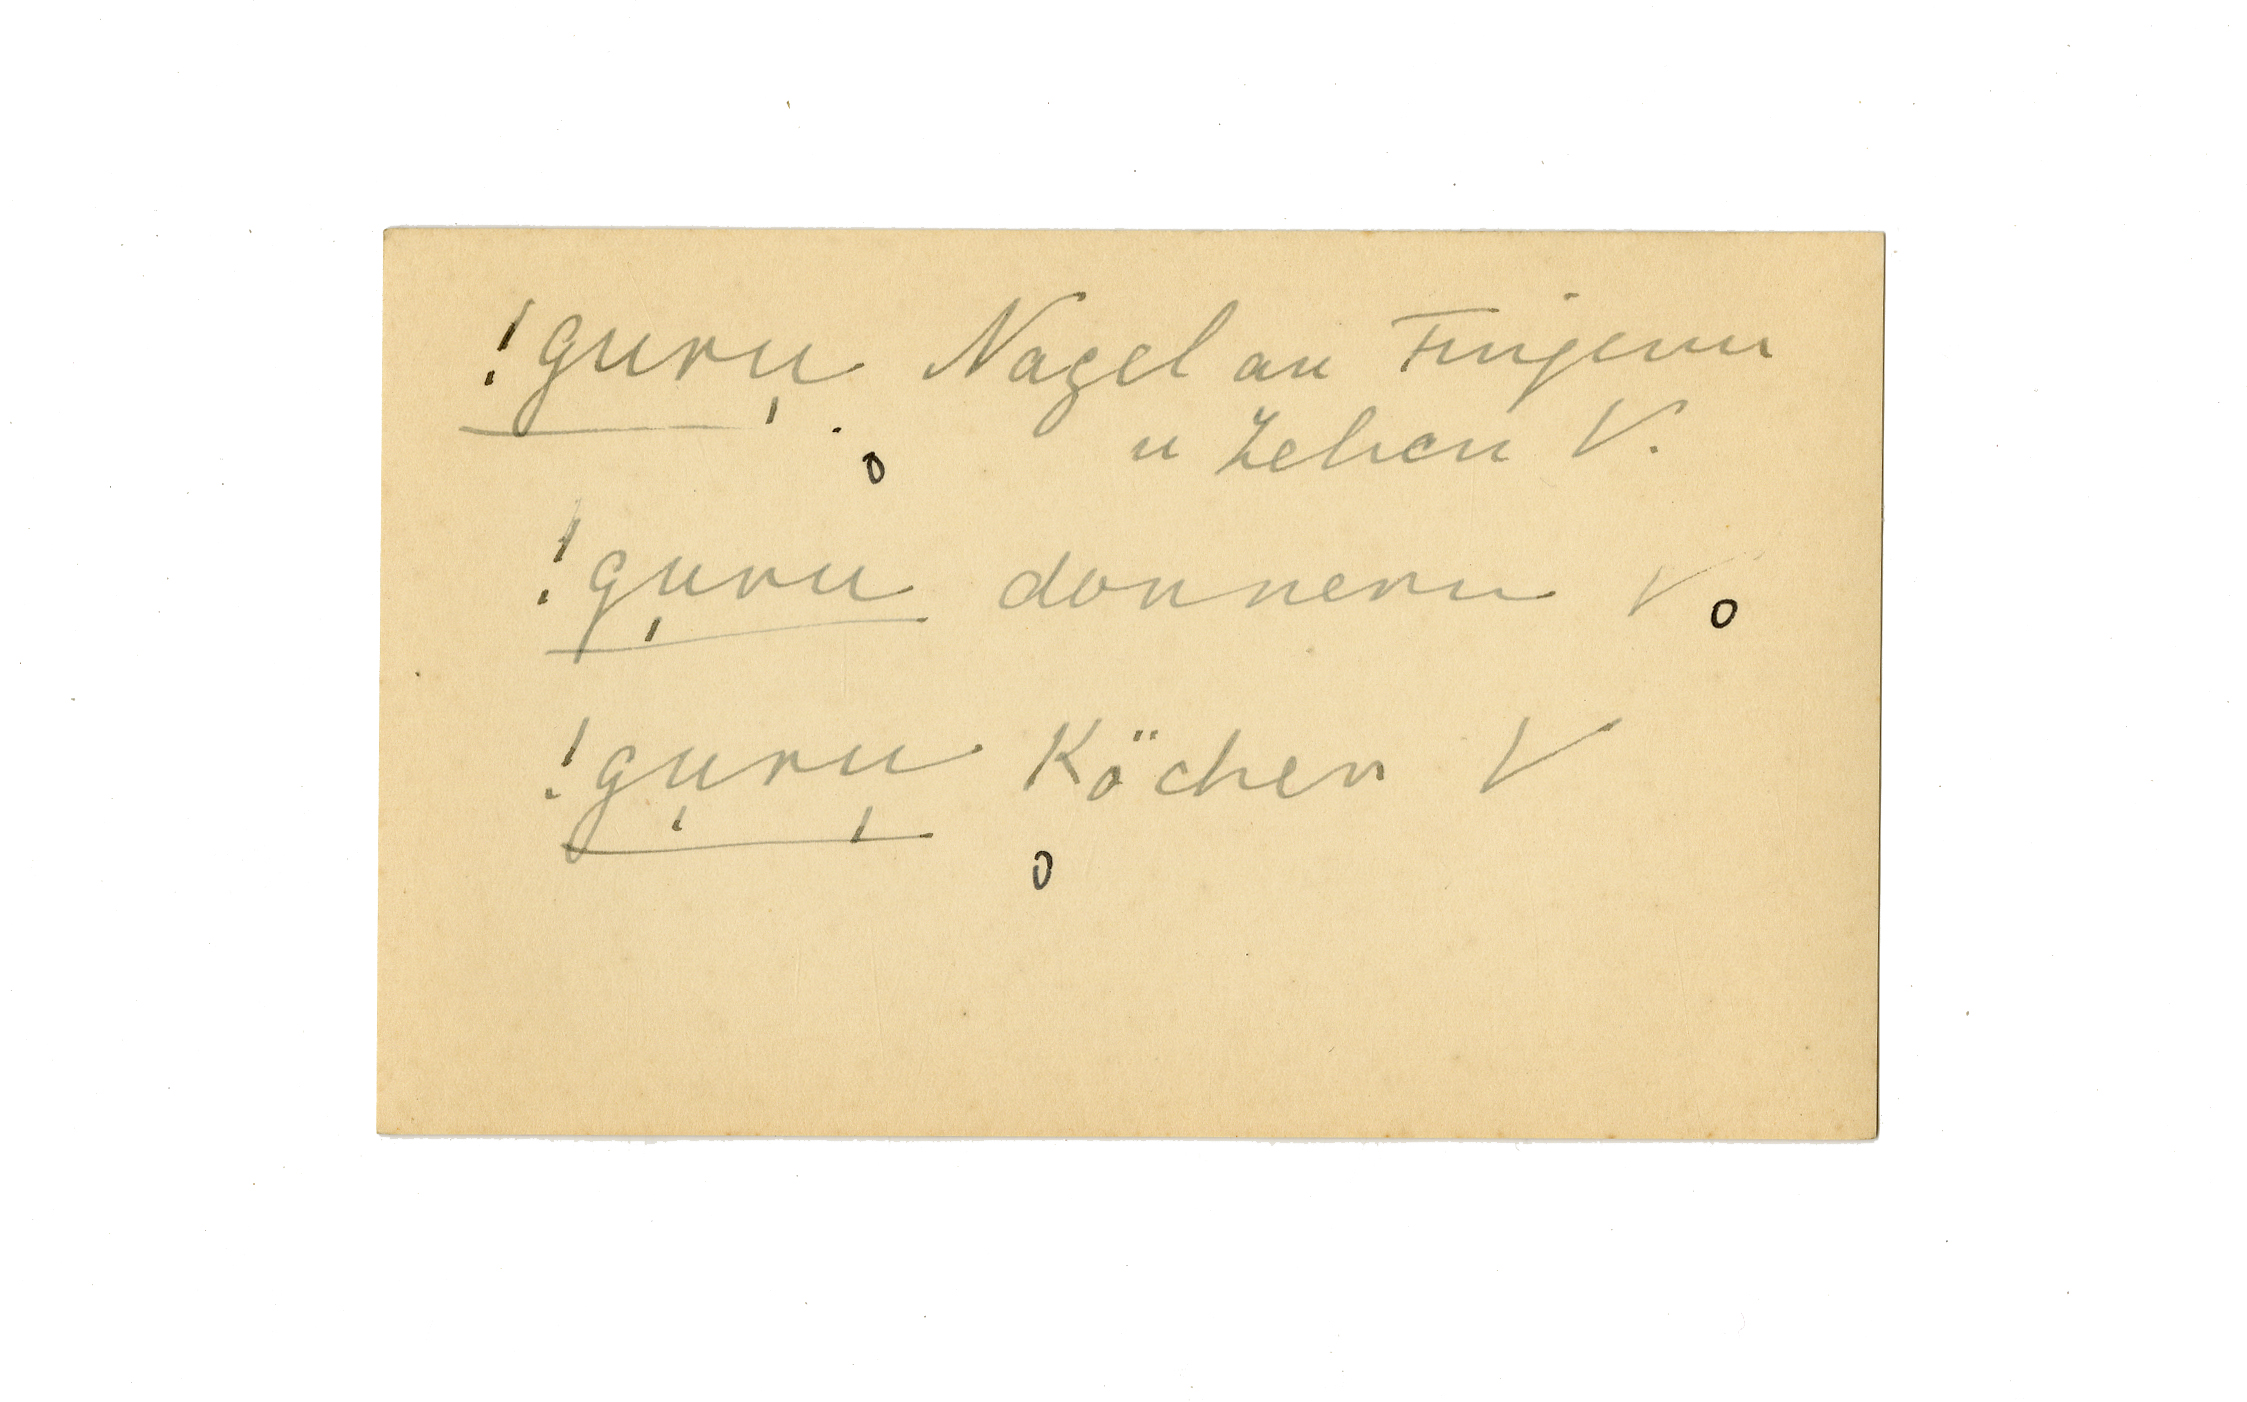 !guru̩ Nagel an Fingern
u Zehen V.
o
!gu̩ru donnern V o
!gu̩ru̩ Köcher V
o